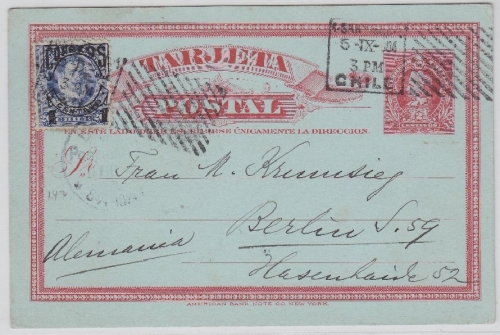 TARJETA
POSTAL
EN ESTE LADO DEBE ESCRIBIRSE ÚNICAMENTE LA DIRECCION.
5-IX-
3 PM
CHILE
Frau M.
Berlin S. 59
Alemania
Hasenhaide 52
AMERICAN BANK NOTE CO. NEW YORK.